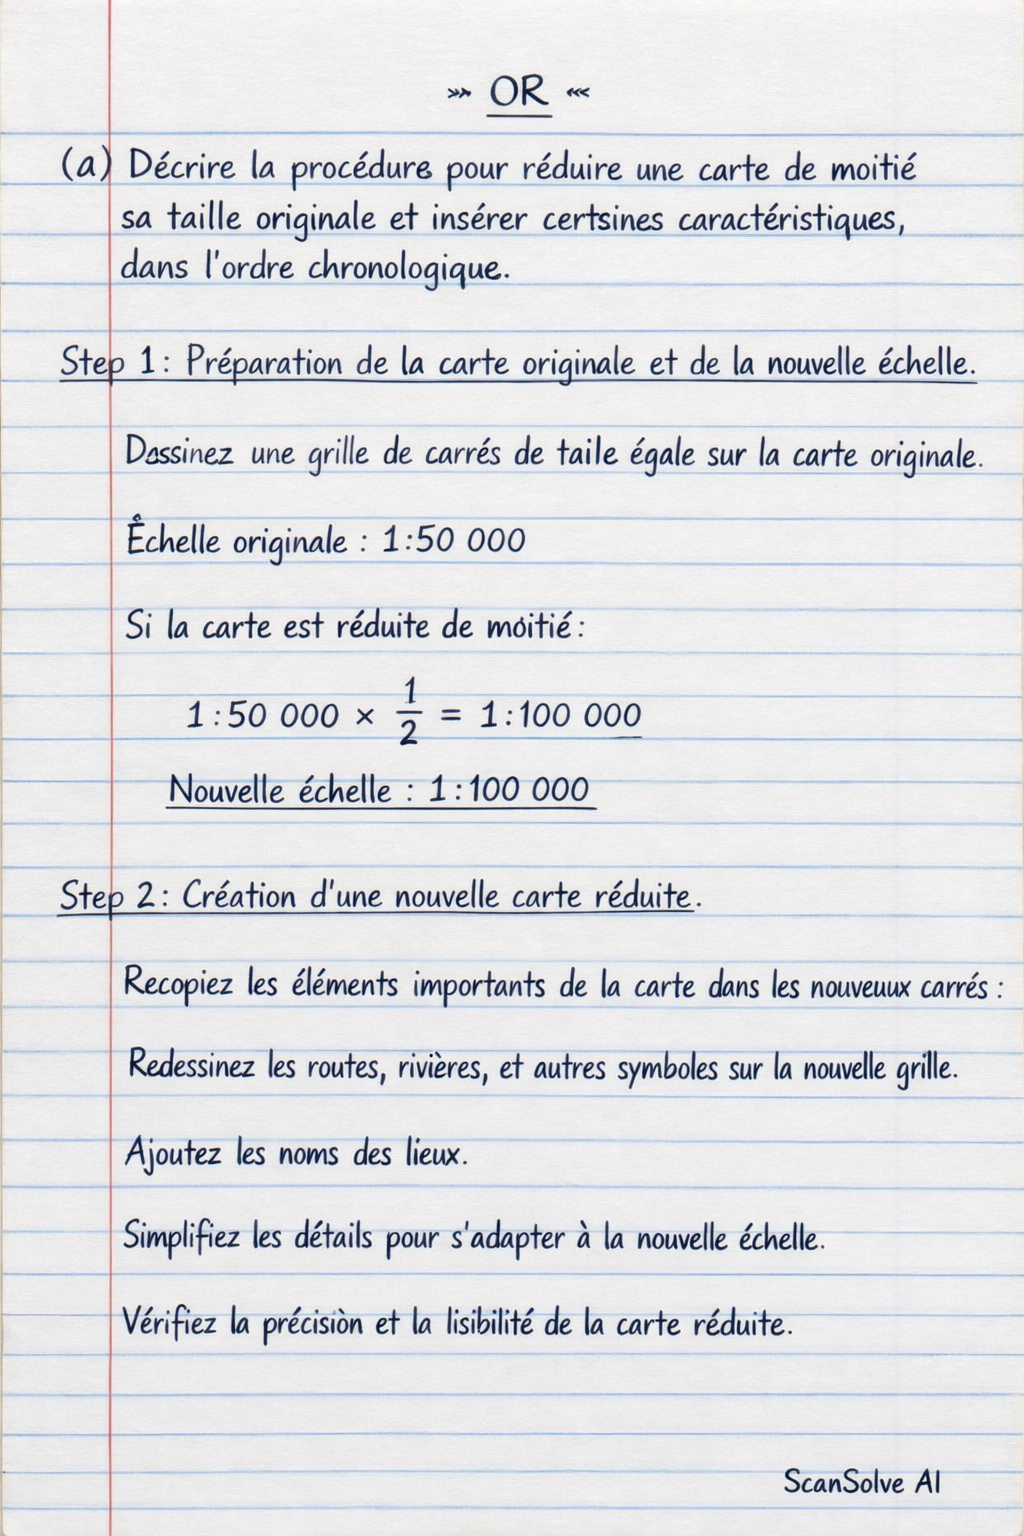 »» OR ««
(a) Décrire la procédure pour réduire une carte de moitié
sa taille originale et insérer certsines caractéristiques,
dans l'ordre chronologique.
Step 1: Préparation de la carte originale et de la nouvelle échelle.
Dessinez une grille de carrés de taile égale sur la carte originale.
Échelle originale : 1:50 000
Si la carte est réduite de moitié:
1:50 000 × 1/2 = 1:100 000
Nouvelle échelle : 1:100 000
Step 2: Création d'une nouvelle carte réduite.
Recopiez les éléments importants de la carte dans les nouveuux carrés :
Redessinez les routes, rivières, et autres symboles sur la nouvelle grille.
Ajoutez les noms des lieux.
Simplifiez les détails pour s'adapter à la nouvelle échelle.
Vérifiez la précisiòn et la lisibilité de la carte réduite.
ScanSolve AI